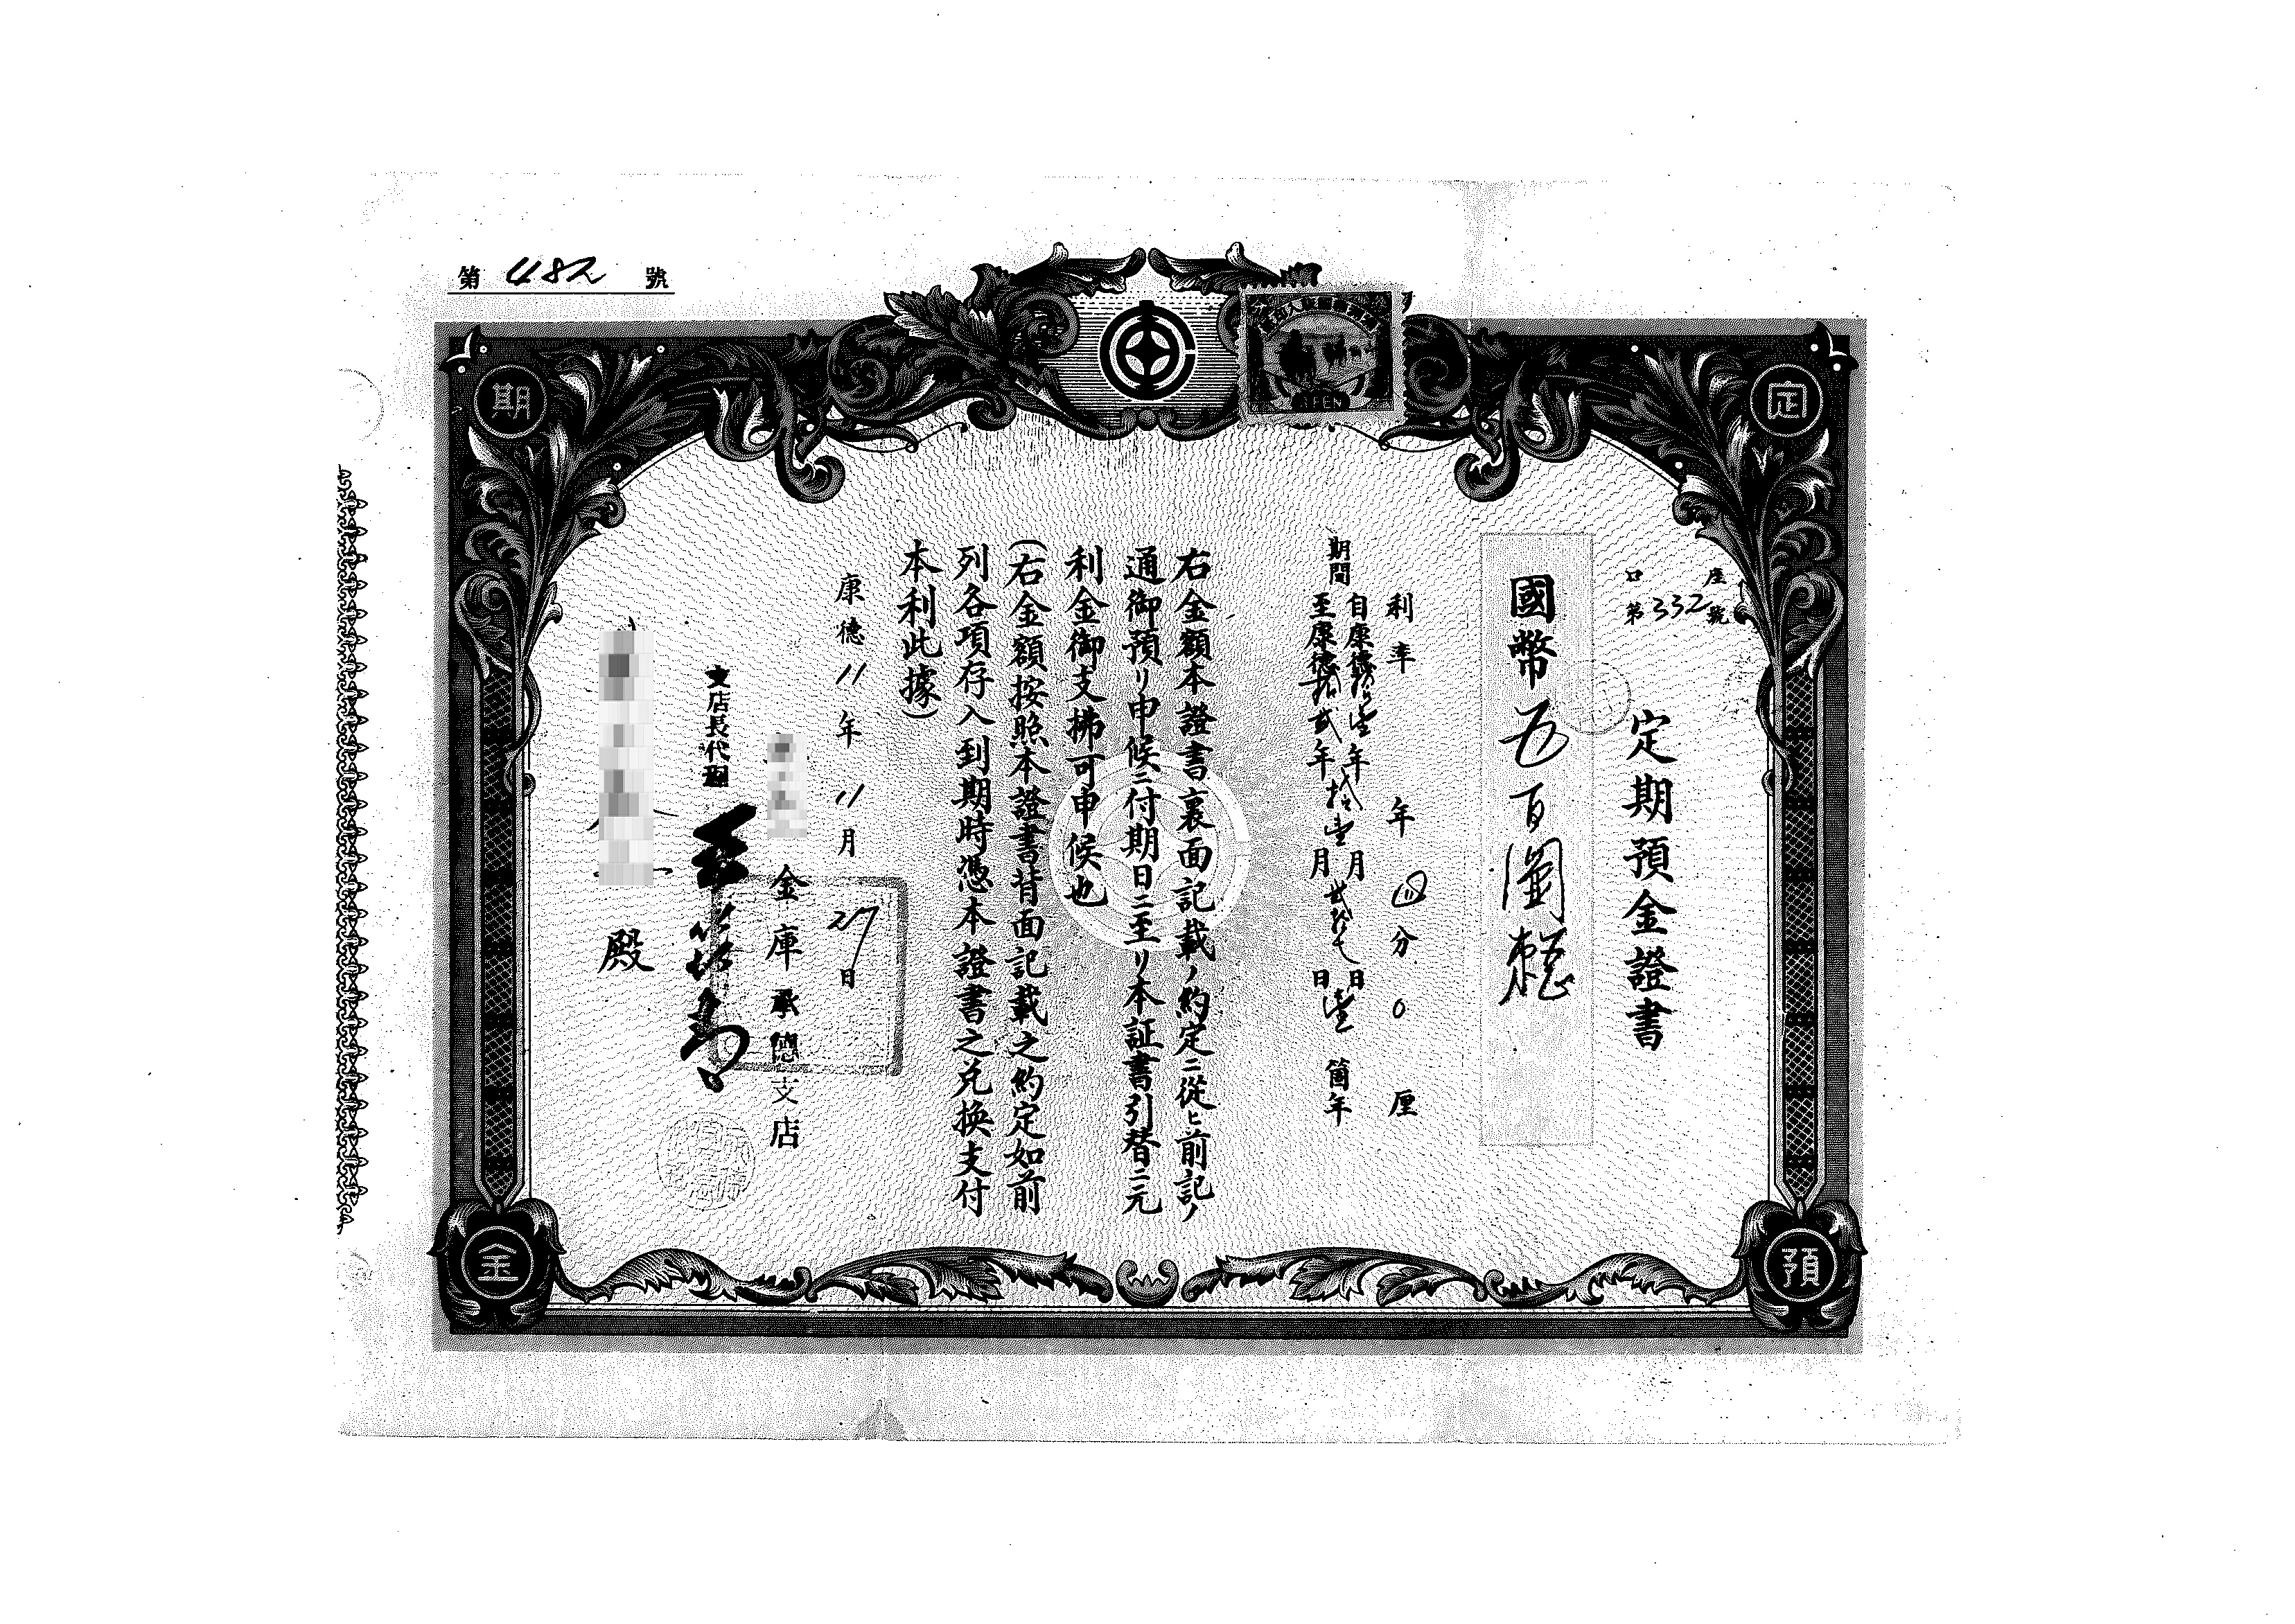 第 482 號
定
期
預
金
口座
第332號
定期預金證書
國幣五百圓整
利率 年四分0厘
期間
自康德拾壹年拾壹月貳拾七日
至康德拾貳年 月 日
壹箇年
右金額本證書裏面記載ノ約定ニ從ヒ前記ノ
通御預リ申候ニ付期日ニ至リ本証書引替ニ元
利金御支拂可申候也
(右金額按照本證書背面記載之約定如前
列各項存入到期時憑本證書之兌換支付
本利此據)
康德11年11月27日
金庫承德支店
支店長代理
殿